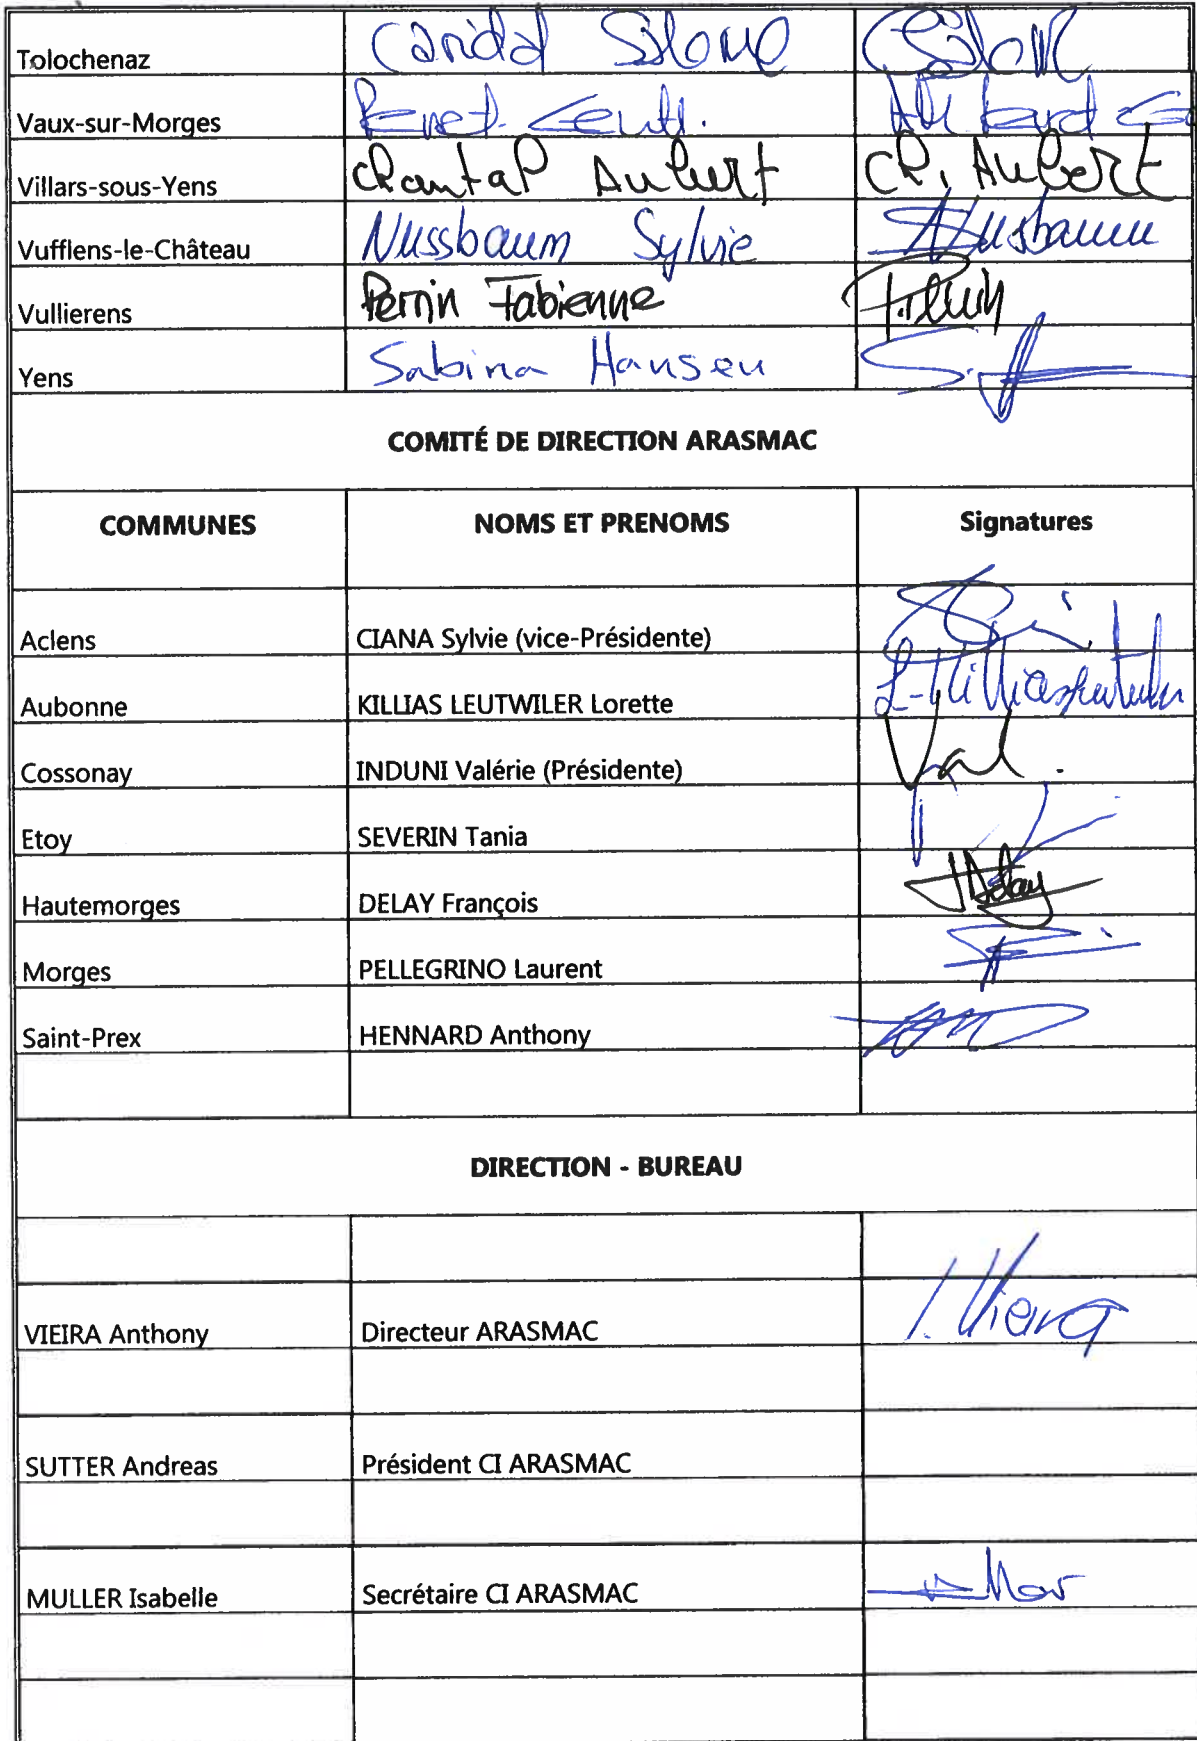 Tolochenaz Candid Salomé
Vaux-sur-Morges
Villars-sous-Yens Chantal Aubert Ch. Aubert
Vufflens-le-Château Nussbaum Sylvie Nussbaum
Vullierens Perrin Fabienne
Yens Sabina Hansen
COMITÉ DE DIRECTION ARASMAC
COMMUNES NOMS ET PRENOMS Signatures
Aclens CIANA Sylvie (vice-Présidente)
Aubonne KILLIAS LEUTWILER Lorette
Cossonay INDUNI Valérie (Présidente)
Etoy SEVERIN Tania
Hautemorges DELAY François
Morges PELLEGRINO Laurent
Saint-Prex HENNARD Anthony
DIRECTION - BUREAU
VIEIRA Anthony Directeur ARASMAC
SUTTER Andreas Président CI ARASMAC
MULLER Isabelle Secrétaire CI ARASMAC